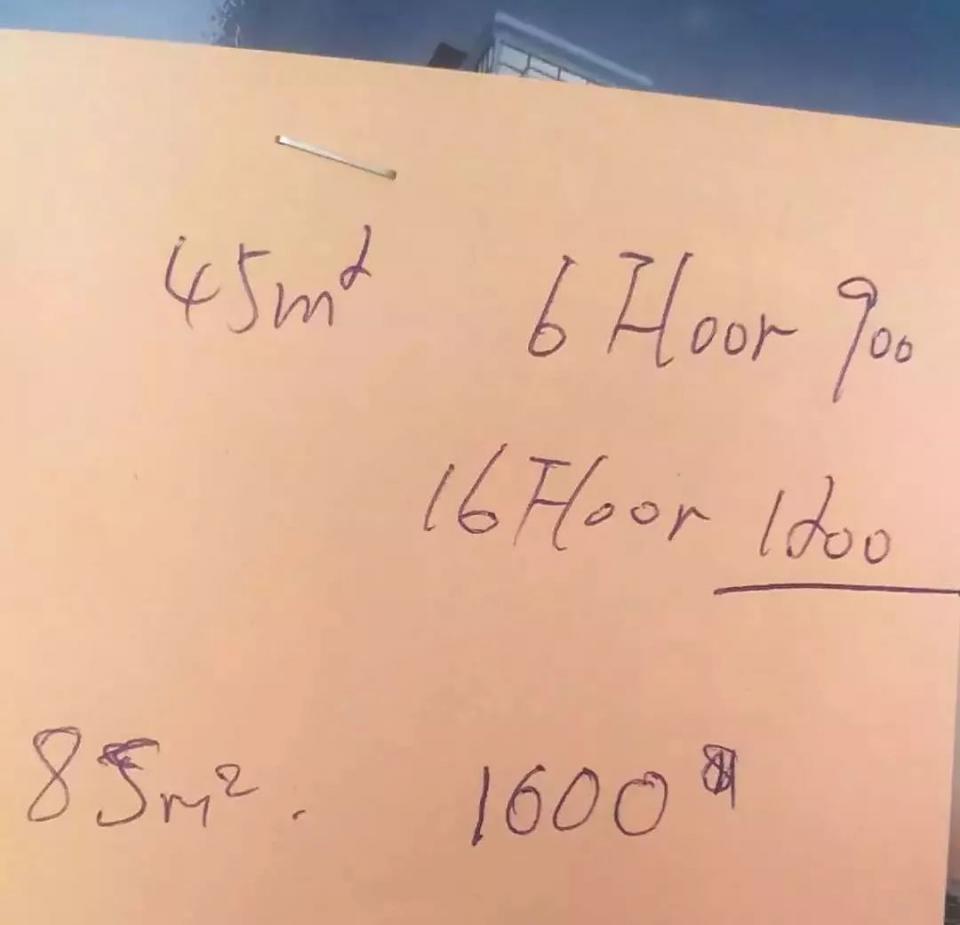 45m² 6 Floor 900
16 Floor 1200
85m². 1600